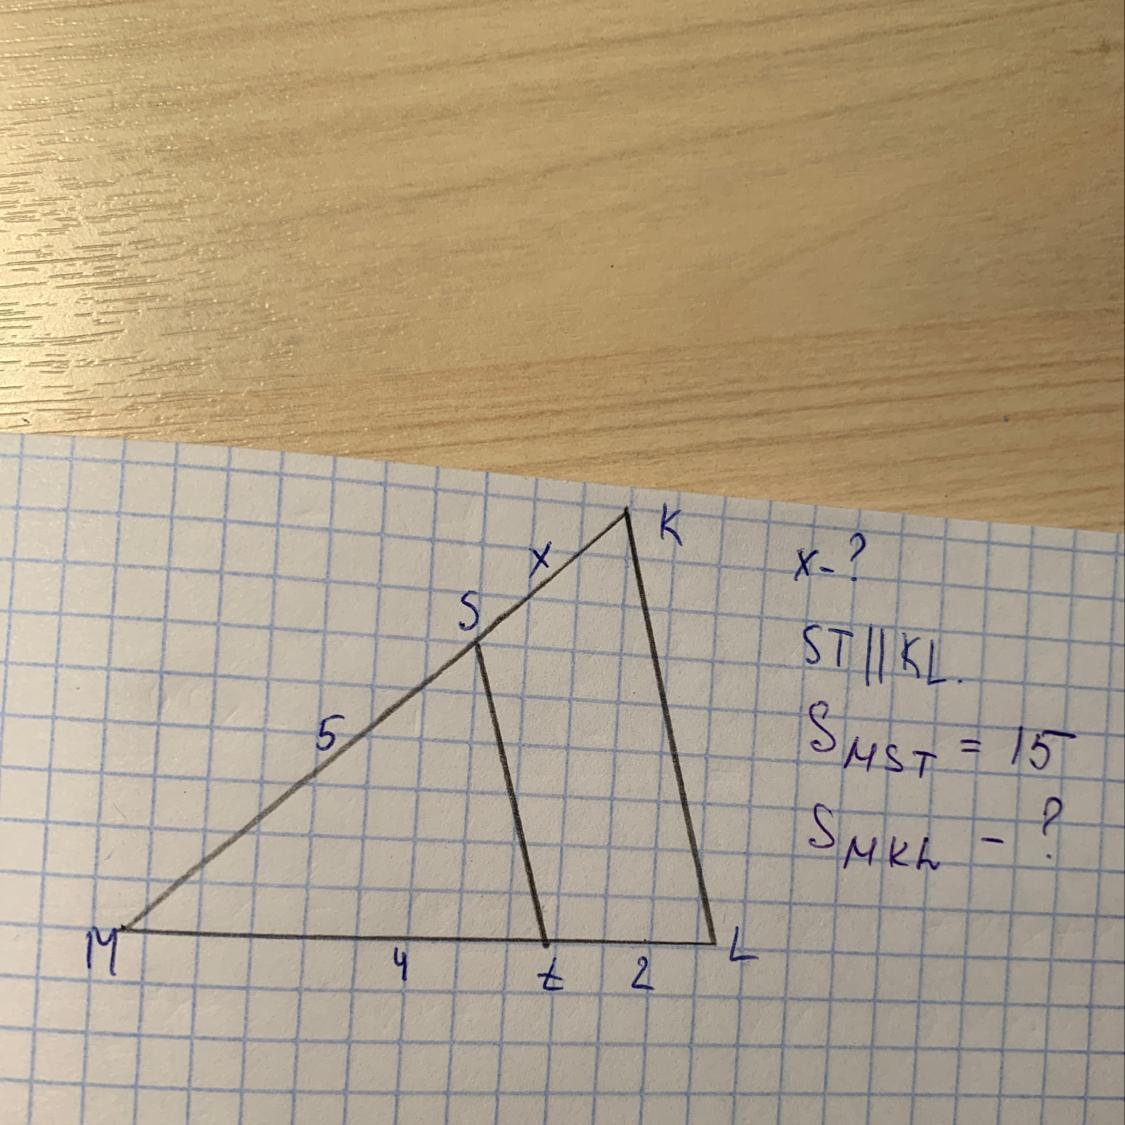 K
x
x - ?
S
ST || KL.
5
S MST = 15
S MKL - ?
M
L
4
t
2